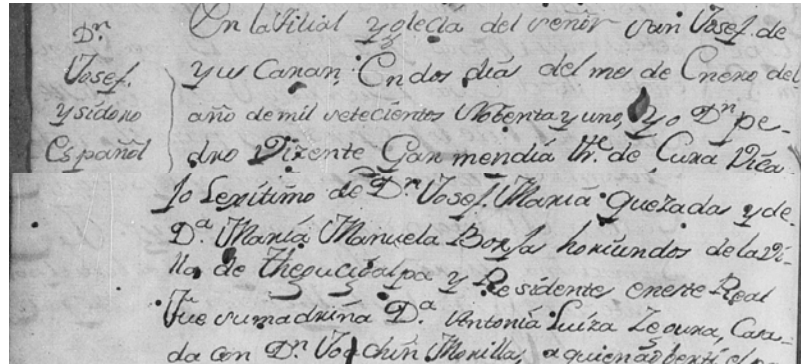 Dn.
Josef.
Ysidoro
Español
En la Filial Yglecia del señor san Josef. de
yus Canan. En dos dias del mes de Enero del
año de mil setecientos Nobenta y uno, Yo Dn pe-
dro Vizente Garmendia Thte. de Cura Vica
jo Lexitimo de Dn. Josef. Maria Quezada y de
Da. Maria Manuela Borja horiundos de la Vi-
lla de Thegucigalpa y Residentes en este Real
Fue su madrina Da. Antonia Luiza Zeoura, Casa-
da con Dn. Joachin Morilla, a quien adberti el pa